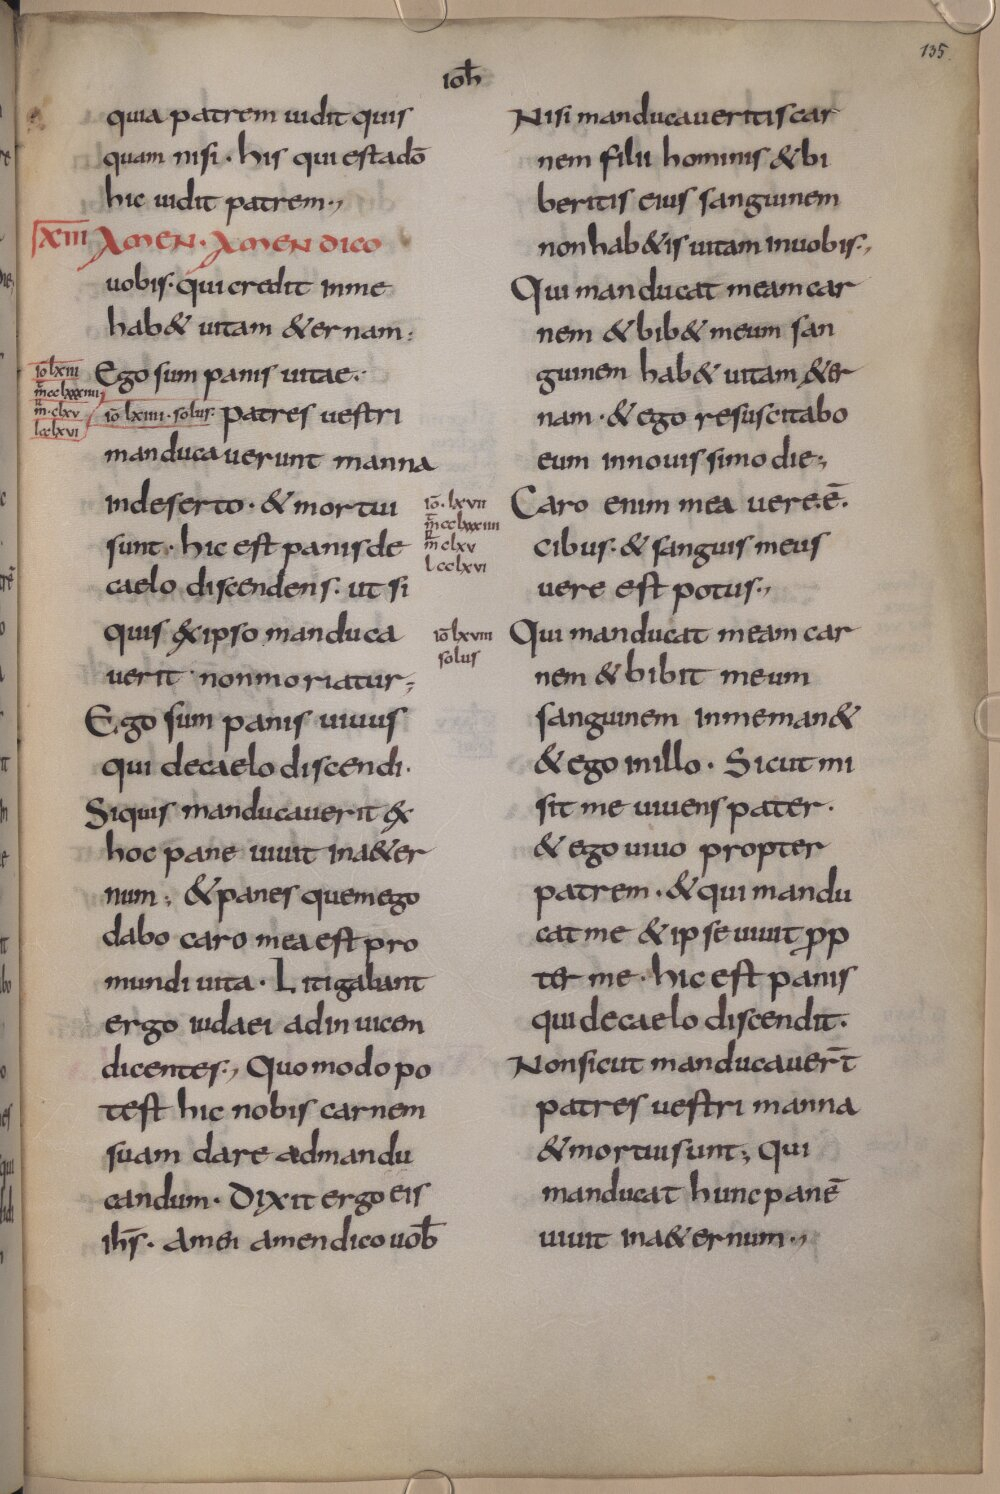 135
ioh̄
quia patrem uidit quis
quam nisi · his qui est ado̅
hic uidit patrem·,
XIII AMEN · AMEN DICO
uobis· qui credit in me
hab& uitam &ernam:
io̅ lxiii
m̅ cclxxxiiii
m̅ · clxv
l cclxvi
Ego sum panis uitae·
io̅ lxiiii · solus· patres uestri
manducauerunt manna
in deserto · & mortui
sunt · hic est panis de
caelo discendens · ut si
quis ex ipso manduca
uerit non moriatur;
Ego sum panis uiuus
qui de caelo discendi·
Siquis manducauerit ex
hoc pane uiuit in a&er
num; & panes quem ego
dabo caro mea est pro
mundi uita · Litigabant
ergo iudaei ad inuicem
dicentes·, Quomodo po
test hic nobis carnem
suam dare ad mandu
candum · Dixit ergo eis
ih̅s · Amen amen dico uob̅
Nisi manducaueritis car
nem filii hominis & bi
beritis eius sanguinem
non hab&is uitam in uobis·,
Qui manducat meam car
nem & bib& meum san
guinem hab& uitam &er
nam · & ego resuscitabo
eum in nouissimo die;
io̅ · lxvii
m̅ cclxxxiiii
m̅ clxv
l cclxvi
Caro enim mea uere·e̅·
cibus· & sanguis meus
uere est potus·,
io̅ lxviii
solus
Qui manducat meam car
nem & bibit meum
sanguinem in me man&
& ego in illo · Sicut mi
sit me uiuens pater ·
& ego uiuo propter
patrem · & qui mandu
cat me & ipse uiuit ꝓp
ter me · hic est panis
qui de caelo discendit·
Non sicut manducauer̅t
patres uestri manna
& mortui sunt; Qui
manducat hunc pane̅
uiuit in a&ernum·,